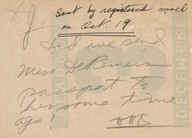 J Sent by registered mail
on Oct 19
Did we send
Miss
passport to
him some time
ago?